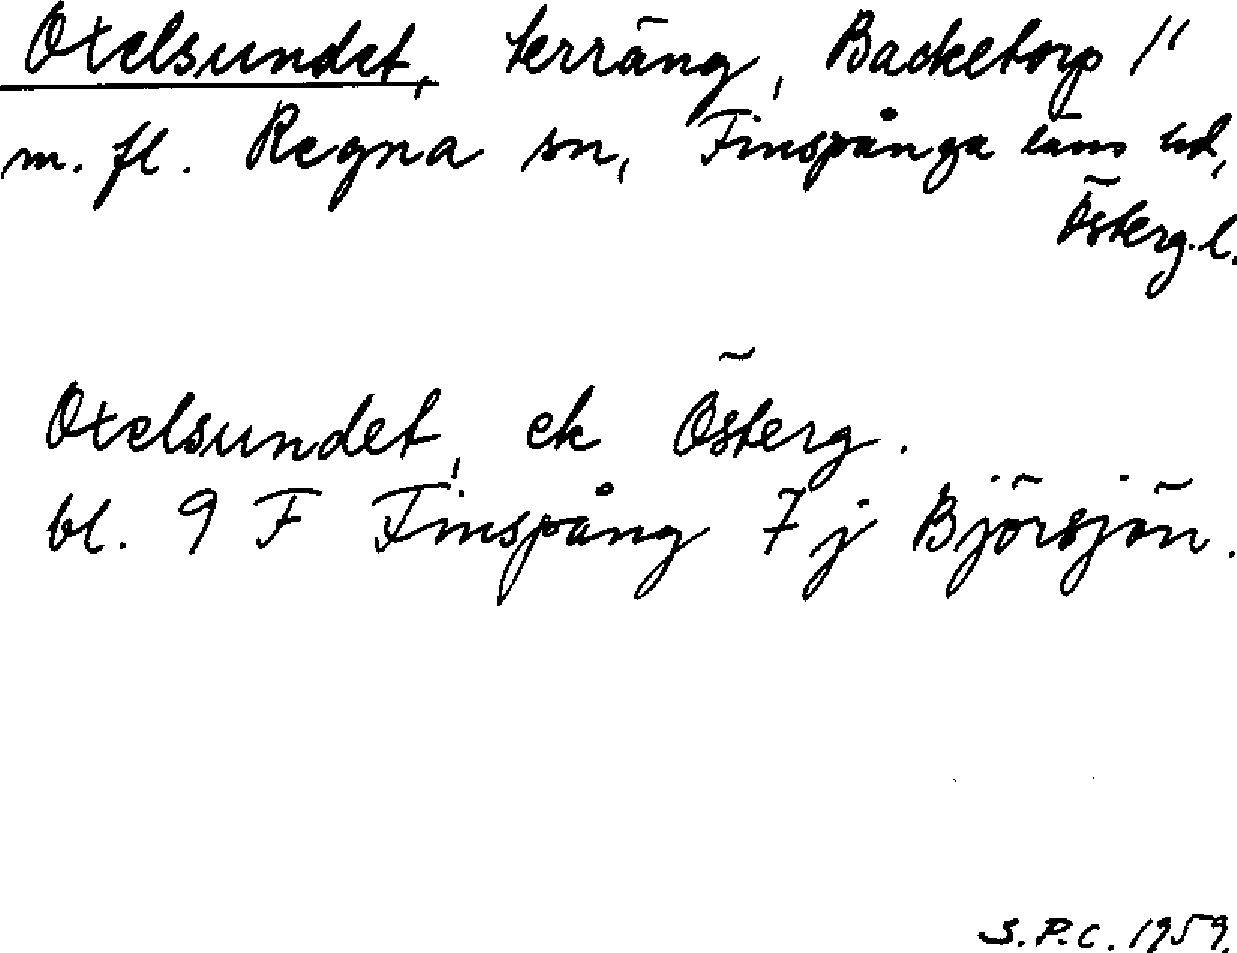 Oxelsundet, terräng, Backetorp 1"
m. fl. Regna sn, Finspånga läns hd,
Österg. l.
Oxelsundet, ek Österg.
bl. 9 F Finspång 7 j Björsjön.
S.P.C. 1959.